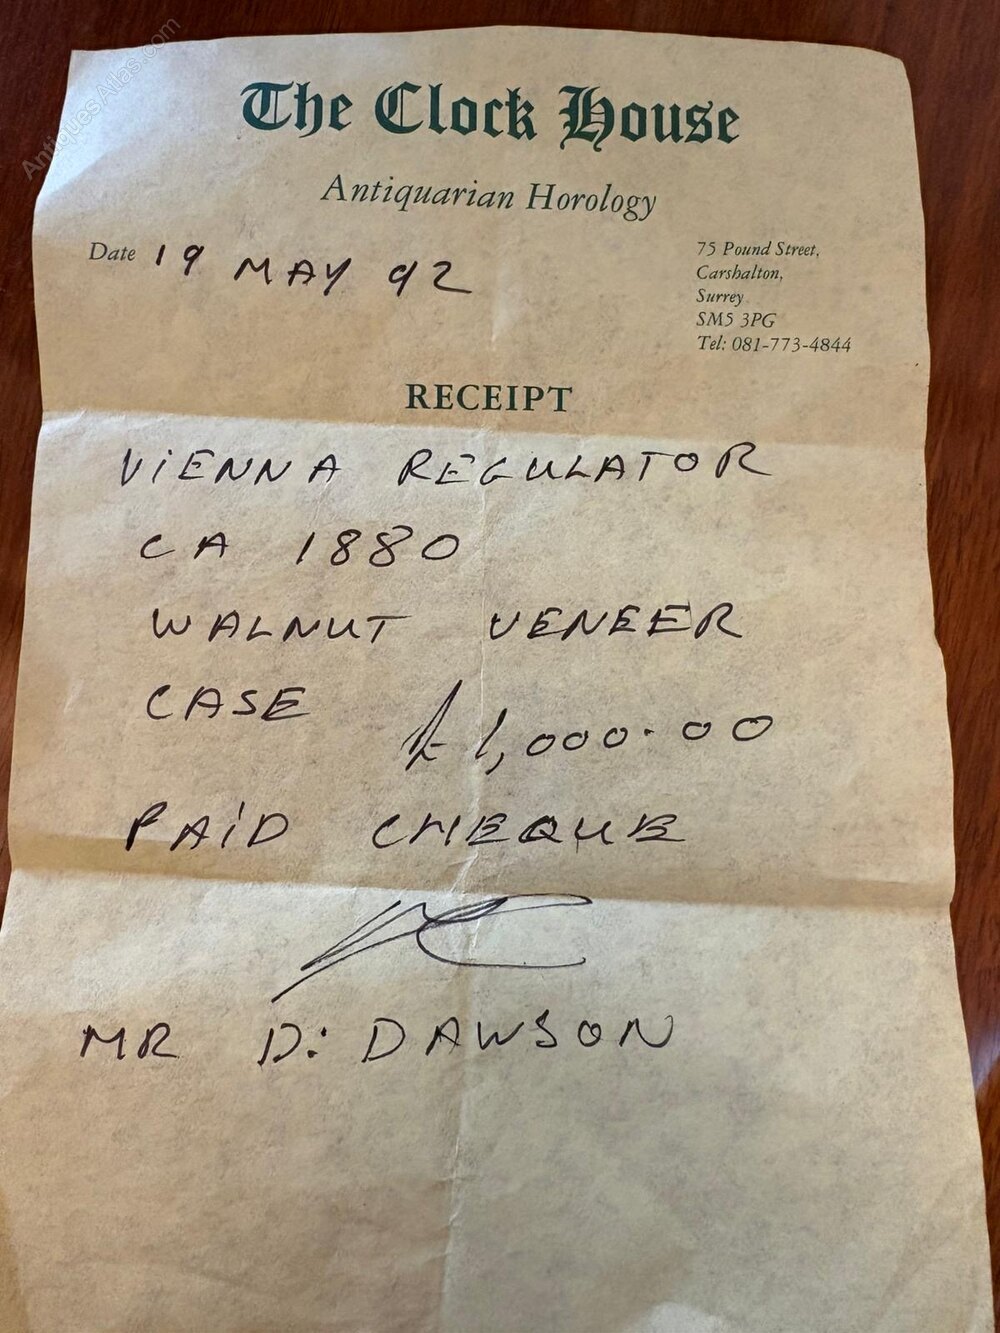 AntiquesAtlas.com
The Clock House
Antiquarian Horology
Date 19 MAY 92
75 Pound Street,
Carshalton,
Surrey
SM5 3PG
Tel: 081-773-4844
RECEIPT
ViENNA REGULATOR
CA 1880
WALNUT VENEER
CASE £1,000.00
PAiD CHEQUE
MR D. DAWSON